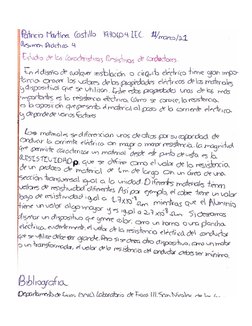 Patricio Martinez Castillo 1910204 IEC 11/marzo/21
Resumen Practica 4
Estudio de las Características Resistivas de Conductores
En el diseño de cualquier instalación o circuito eléctrico tiene gran impor-
tancia conocer los valores de las propiedades eléctricas de los materiales
y dispositivos que se utilizan. Entre estas propiedades una de las mas
importantes es la resistencia eléctrica. Como se conoce, la resistencia
es la oposición que presenta el material al paso de la corriente eléctrica
y depende de varios factores
Los materiales se diferencian unos de otros por su capacidad de
conducir la corriente eléctrica con mayor o menor resistencia. La magnitud
que permite caracterizar un material desde este punto de vista es la
RESISTIVIDAD ρ, que se define como el valor de la resistencia
de un pedazo de material de 1m de largo con un área de una
sección transversal igual a la unidad. Diferentes materiales tienen
valores de resistividad diferentes. Así por ejemplo, el cobre tiene un valor
bajo de resistividad igual a 1.7x10⁻⁸ mientras que el Aluminio
tiene un valor algo mayor y es igual a 2.7x10⁻⁸. Si deseamos
diseñar un dispositivo que genere calor, como un horno o una plancha
eléctrica, evidentemente, el valor de la resistencia eléctrica del conductor
que se utilice deberá ser grande. Pero si se desea otro dispositivo, como un motor
o un transformador, el valor de la resistencia del conductor debe ser mínimo.
Bibliografia
Departamento de Física (2020) Laboratorio de Física III. San Nicolás de los